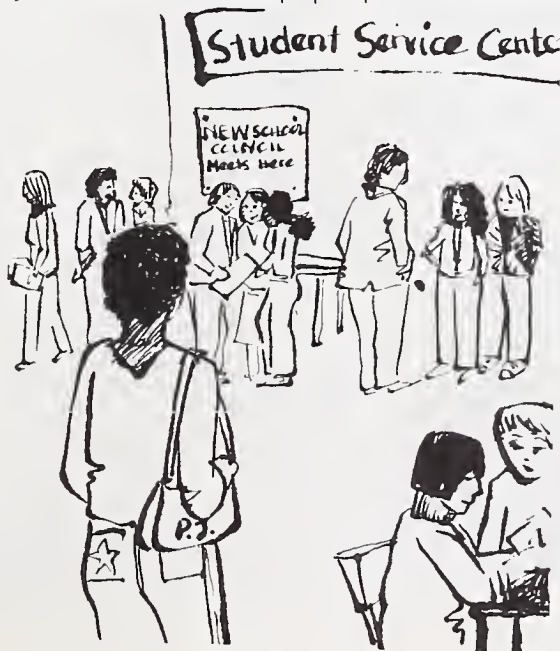 Student Service Cente
NEW SCHOOL
COUNCIL
Meets Here
P.J.